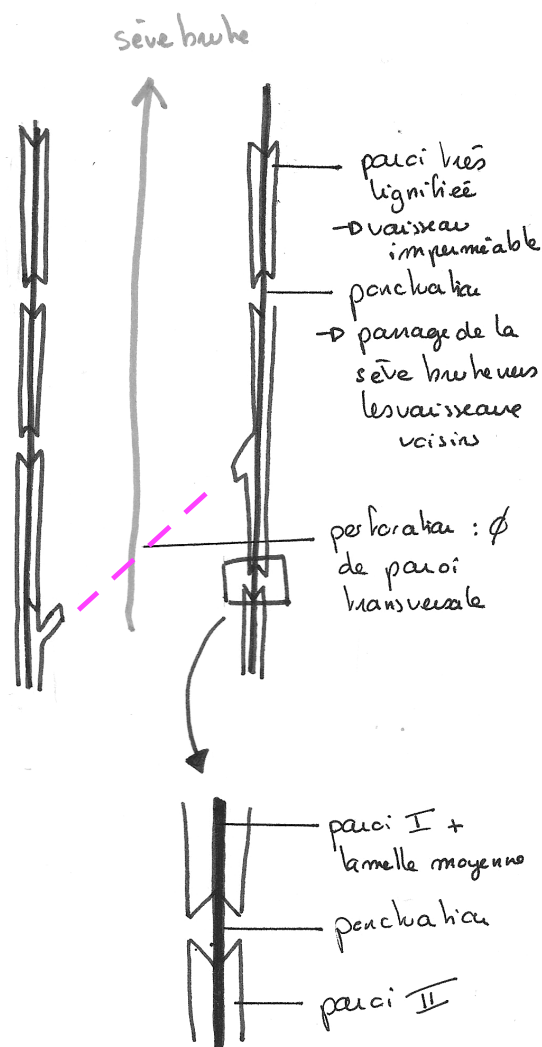 sève brute
paroi très
lignifiée
→ vaisseau
imperméable
ponctuation
→ passage de la
sève brute vers
les vaisseaux
voisins
perforation : ∅
de paroi
transversale
paroi I +
lamelle moyenne
ponctuation
paroi II